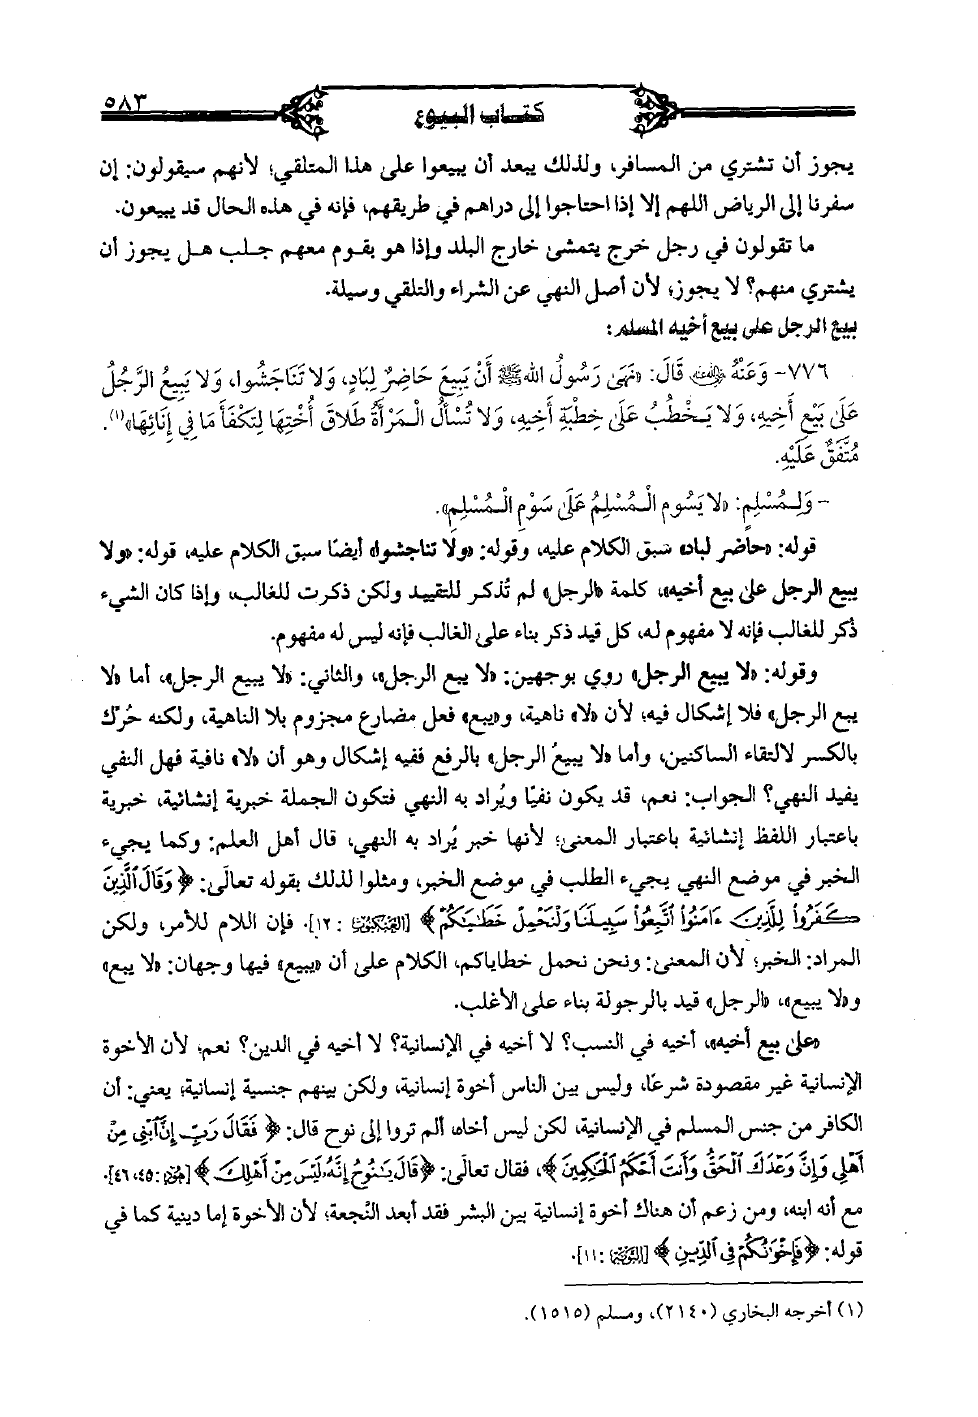 كتاب البيوع
٥٨٣
يجوز أن تشتري من المسافر، ولذلك يبعد أن يبيعوا على هذا المتلقي؛ لأنهم سيقولون: إن
سفرنا إلى الرياض اللهم إلا إذا احتاجوا إلى دراهم في طريقهم، فإنه في هذه الحال قد يبيعون.
ما تقولون في رجل خرج يتمشى خارج البلد وإذا هو بقوم معهم جلب هل يجوز أن
يشتري منهم؟ لا يجوز؛ لأن أصل النهي عن الشراء والتلقي وسيلة.
بيع الرجل على بيع أخيه المسلم:
٧٧٦- وَعَنْهُ رضي الله عنه قَالَ: «نَهَى رَسُولُ اللهِ ﷺ أَنْ يَبِيعَ حَاضِرٌ لِبَادٍ، وَلَا تَنَاجَشُوا، وَلَا يَبِيعُ الرَّجُلُ
عَلَى بَيْعِ أَخِيهِ، وَلَا يَخْطُبُ عَلَى خِطْبَةِ أَخِيهِ، وَلَا تُسْأَلُ الْمَرْأَةُ طَلَاقَ أُخْتِهَا لِتَكْفَأَ مَا فِي إِنَائِهَا»(١).
مُتَّفَقٌ عَلَيْهِ.
- وَلِمُسْلِمٍ: «لَا يَسُومِ الْمُسْلِمُ عَلَى سَوْمِ الْمُسْلِمِ».
قوله: «حاضر لباد» سبق الكلام عليه، وقوله: «ولا تناجشوا» أيضًا سبق الكلام عليه، قوله: «ولا
يبيع الرجل على بيع أخيه»، كلمة «الرجل» لم تُذكر للتقييد ولكن ذكرت للغالب، وإذا كان الشيء
ذُكر للغالب فإنه لا مفهوم له، كل قيد ذكر بناء على الغالب فإنه ليس له مفهوم.
وقوله: «لا يبيع الرجل» روي بوجهين: «لا يبع الرجل»، والثاني: «لا يبيع الرجل»، أما «لا
يبع الرجل» فلا إشكال فيه؛ لأن «لا» ناهية، و«يبع» فعل مضارع مجزوم بلا الناهية، ولكنه حُرّك
بالكسر لالتقاء الساكنين، وأما «لا يبيعُ الرجل» بالرفع ففيه إشكال وهو أن «لا» نافية فهل النفي
يفيد النهي؟ الجواب: نعم، قد يكون نفيًا ويُراد به النهي فتكون الجملة خبرية إنشائية، خبرية
باعتبار اللفظ إنشائية باعتبار المعنى؛ لأنها خبر يُراد به النهي، قال أهل العلم: وكما يجيء
الخبر في موضع النهي يجيء الطلب في موضع الخبر، ومثلوا لذلك بقوله تعالى: ﴿وَقَالَ ٱلَّذِينَ
كَفَرُواْ لِلَّذِينَ ءَامَنُواْ ٱتَّبِعُواْ سَبِيلَنَا وَلْنَحْمِلْ خَطَٰيَٰكُمْ﴾ [العنكبوت: ١٢]. فإن اللام للأمر، ولكن
المراد: الخبر؛ لأن المعنى: ونحن نحمل خطاياكم، الكلام على أن «يبيع» فيها وجهان: «لا يبع»
و«لا يبيع»، «الرجل» قيد بالرجولة بناء على الأغلب.
«على بيع أخيه»، أخيه في النسب؟ لا أخيه في الإنسانية؟ لا أخيه في الدين؟ نعم؛ لأن الأخوة
الإنسانية غير مقصودة شرعًا، وليس بين الناس أخوة إنسانية، ولكن بينهم جنسية إنسانية؛ يعني: أن
الكافر من جنس المسلم في الإنسانية، لكن ليس أخاه، ألم تروا إلى نوح قال: ﴿فَقَالَ رَبِّ إِنَّ ٱبْنِى مِنْ
أَهْلِى وَإِنَّ وَعْدَكَ ٱلْحَقُّ وَأَنتَ أَحْكَمُ ٱلْحَٰكِمِينَ﴾، فقال تعالى: ﴿قَالَ يَٰنُوحُ إِنَّهُۥ لَيْسَ مِنْ أَهْلِكَ﴾ [هود: ٤٥، ٤٦].
مع أنه ابنه، ومن زعم أن هناك أخوة إنسانية بين البشر فقد أبعد النُّجعة؛ لأن الأخوة إما دينية كما في
قوله: ﴿فَإِخْوَٰنُكُمْ فِى ٱلدِّينِ﴾ [التوبة: ١١].
(١) أخرجه البخاري (٢١٤٠)، ومسلم (١٥١٥).